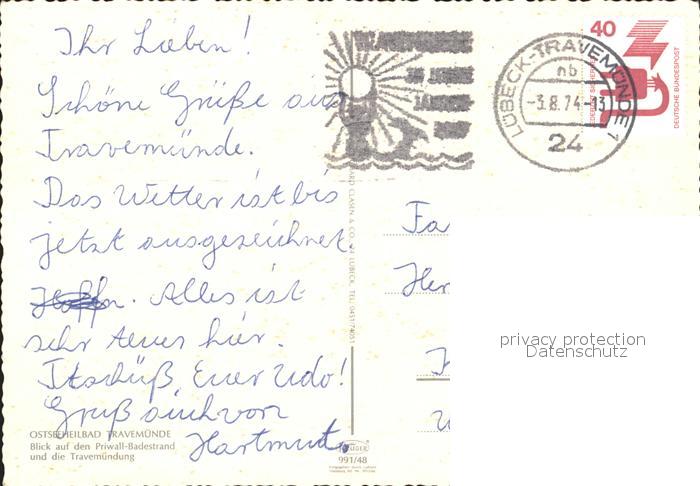 Ihr Lieben!
Schöne Grüße aus
Travemünde.
Das Wetter ist bis
jetzt ausgezeichnet.
Alles ist
sehr teuer hier.
Ttschüß Euer Udo!
Gruß auch von
Hartmut
OSTSEEHEILBAD TRAVEMÜNDE
Blick auf den Priwall-Badestrand
und die Travemündung
TRAVEMÜNDE
LÜBECK-TRAVEMÜNDE 1
nb
-3.8.74-13
24
40
DEUTSCHE BUNDESPOST
991/48
Fa
Her
privacy protection
Datenschutz